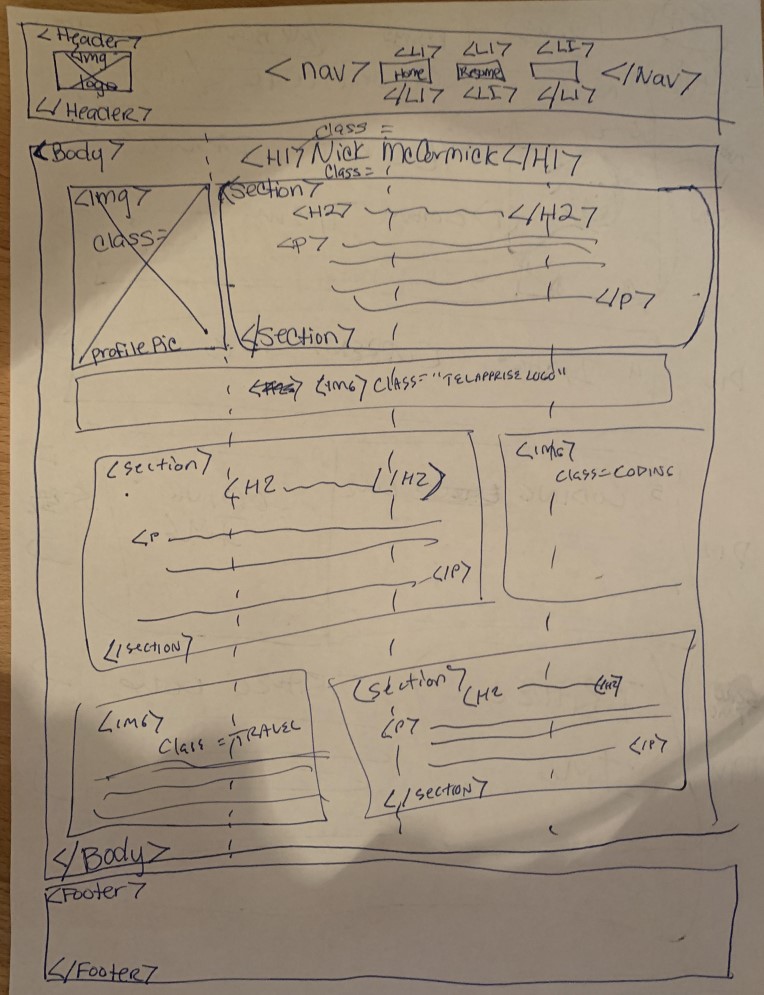 <Header>
<img>
logo
</Header>
<nav>
<LI> <LI> <LI>
Home Resume
</LI> <LI> </LI>
</Nav>
class =
<Body>
<H1> Nick McCormick </H1>
class =
<img>
class=
profile Pic
<section>
<H2> </H2>
<P>
</P>
</section>
<IMG> CLASS="TELAPPRISE LOGO"
<section>
<H2 </H2>
<P
</P>
</section>
<IMG>
class=CODING
<IMG>
Class = TRAVEL
<section>
<H2 <H2>
<P>
</P>
</section>
</Body>
<Footer>
</Footer>